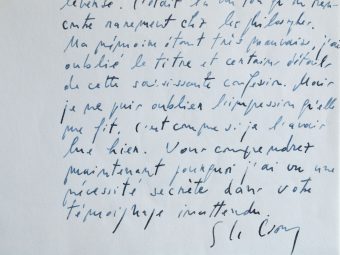 C'était un ton qu'on ren-
contre rarement chez les philosophes.
Ma mémoire étant très mauvaise, j'ai
oublié le titre et certains détails
de cette saisissante confession. Mais
je ne puis oublier l'impression qu'elle
me fit, c'est comme si je l'avais
lue hier. Vous comprendrez
maintenant pourquoi j'ai vu une
nécessité secrète dans votre
témoignage inattendu.